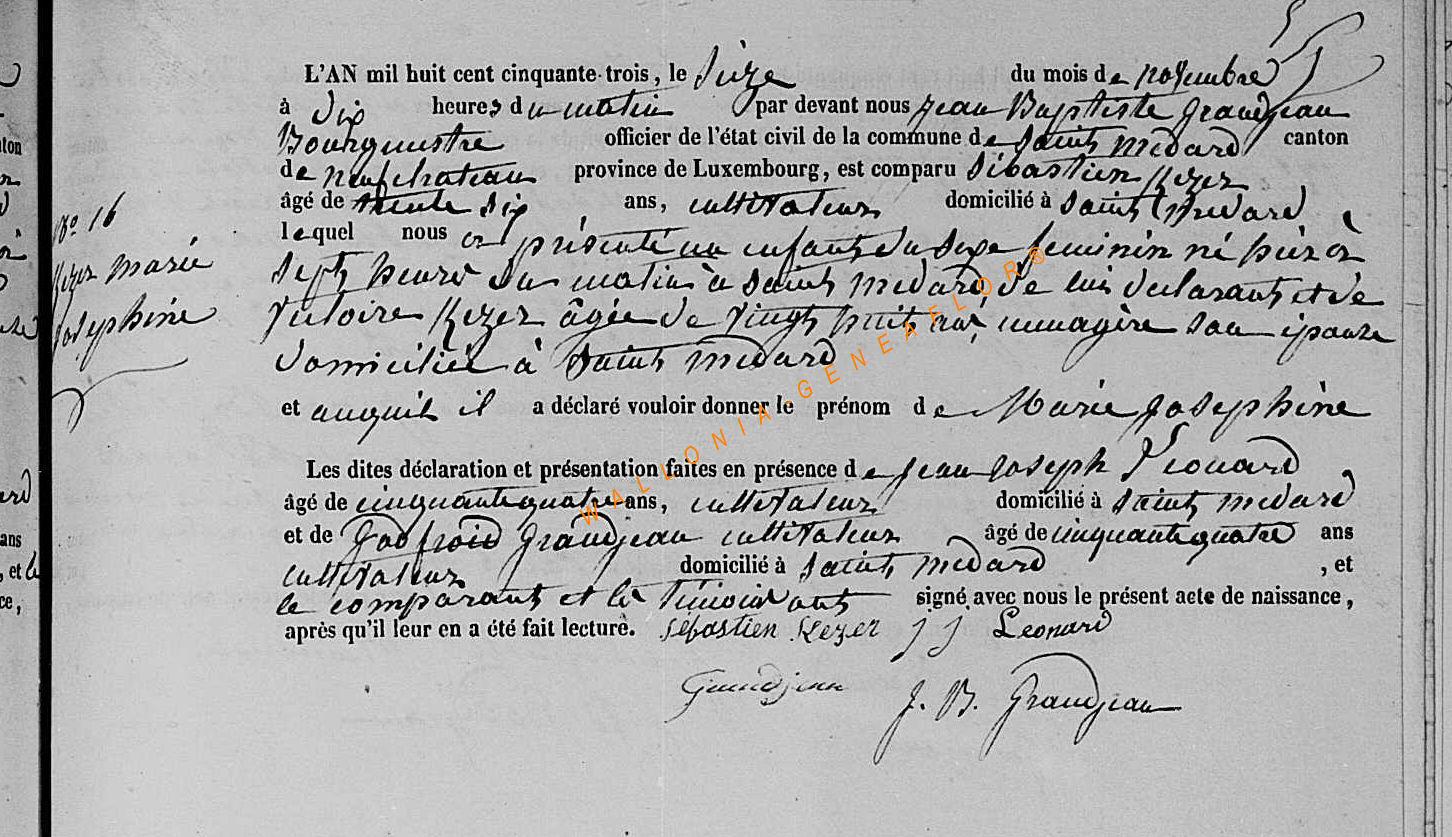 L'AN mil huit cent cinquante-trois, le Seize du mois de novembre
à Dix heures du matin par devant nous Jean Baptiste Grandjean
Bourgmestre officier de l'état civil de la commune de Saint Médard canton
de neufchateau province de Luxembourg, est comparu Sébastien Kezer
âgé de trente Six ans, cultivateur domicilié à Saint Médard,
lequel nous a présenté un enfant du Sexe féminin né hier à
Sept heures du matin à Saint Médard, de lui déclarant et de
Victoire Kezer âgée de vingt huit ans, ménagère son épouse
domiciliée à Saint Médard
et auquel il a déclaré vouloir donner le prénom de Marie Josephine
Les dites déclaration et présentation faites en présence de Jean Joseph Léonard,
âgé de cinquante quatre ans, cultivateur domicilié à Saint Médard
et de Godfroid Grandjean cultivateur âgé de cinquante quatre ans
cultivateur domicilié à Saint Médard, et
le comparant et les témoins ont signé avec nous le présent acte de naissance,
après qu'il leur en a été fait lecture. Sébastien Kezer J J Leonard
Grandjean J. B. Grandjean
No 16
Kezer Marie
Josephine
WALLONIA-GENEAFLOR®